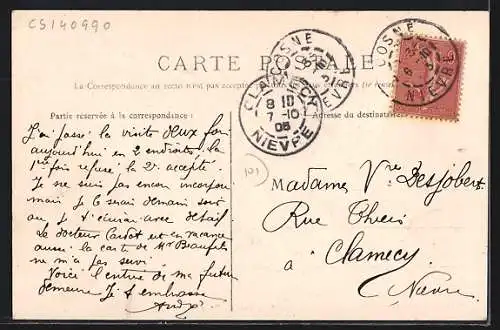 CS140990
COSNE
NIEVRE
CARTE POSTALE
CLAMECY
8 10
7-10
05
NIEVRE
COSNE
NIEVRE
La Correspondance au recto n'est pas acceptée
Partie réservée à la correspondance:
Adresse du destinataire
J'ai passé la visite deux fois
aujourd'hui en 2 endroits. la
1re fois refusé, la 2e accepté.
Je ne suis pas encore incorporé
mais je le serai demain soir
ou je t'écrirai avec détail
Le docteur est en vacance
aussi la carte de Mr
ne m'a pas servi.
Voici l'entrée de ma future
demeure Je t'embrasse
André
101
Madame Vve Desjobert
Rue Thiers
à Clamecy
Nièvre